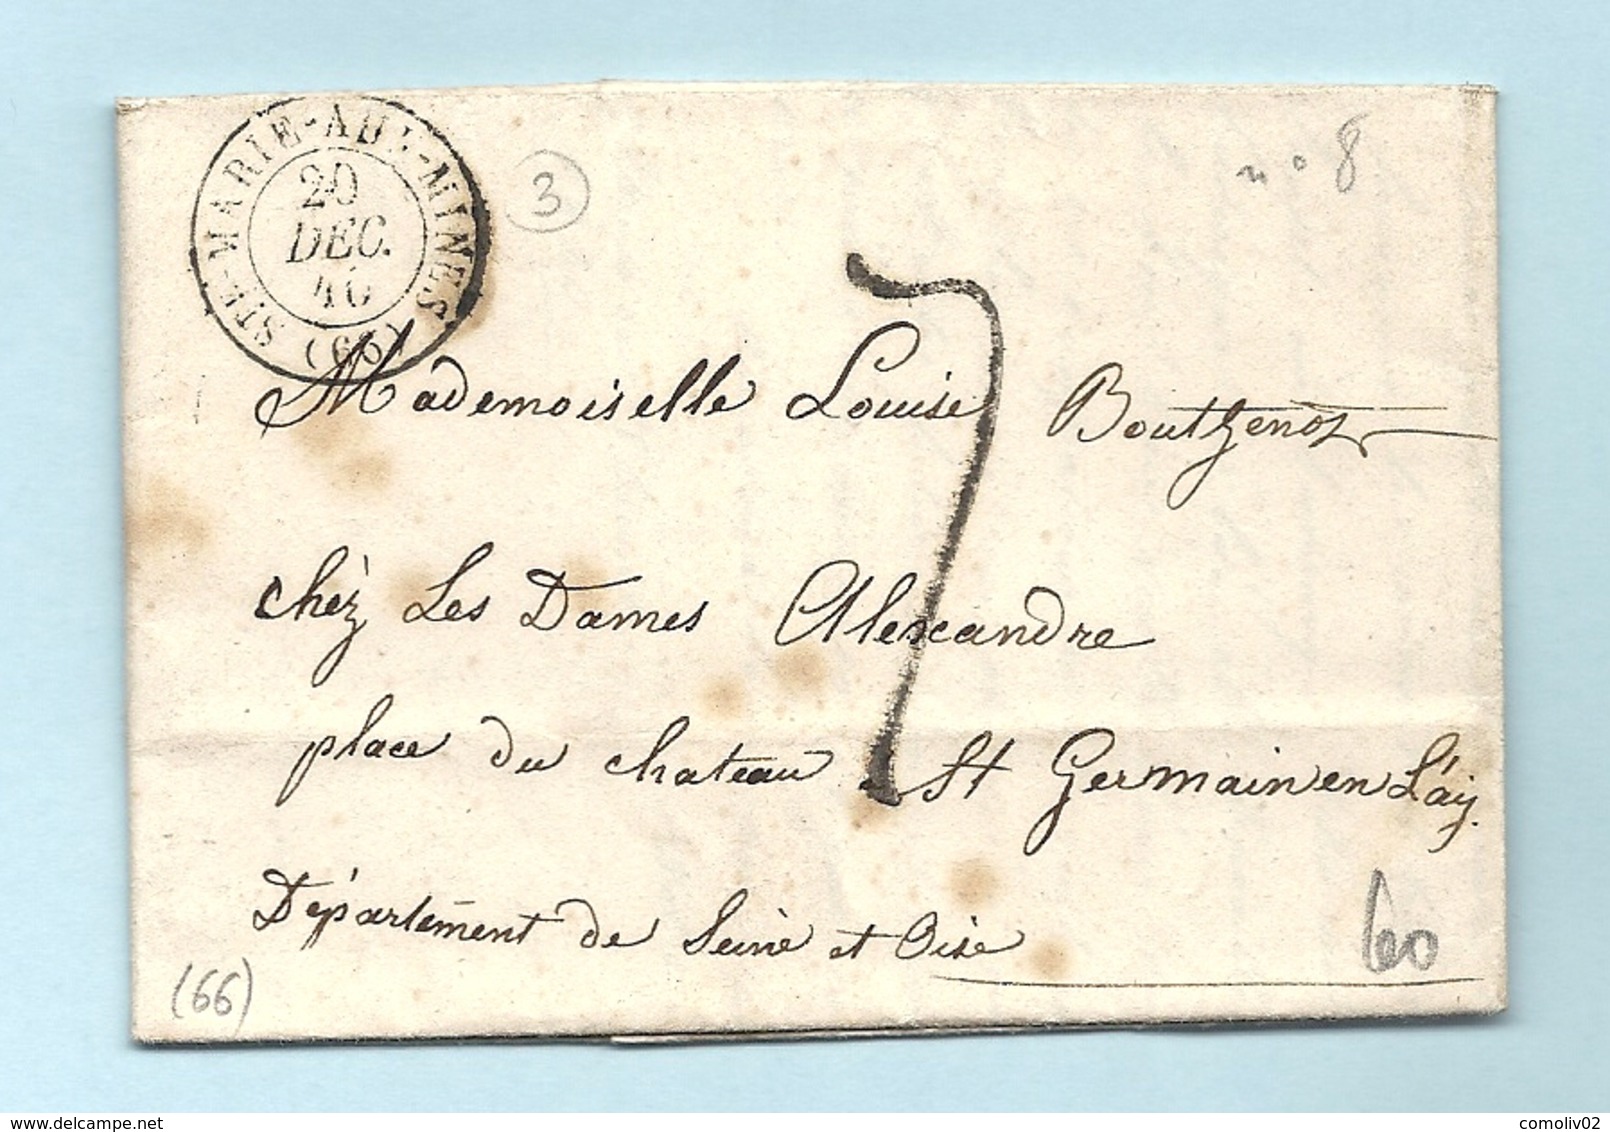 STE-MARIE-AUX-MINES (66)
20
DEC.
40
3
n° 8
7
Mademoiselle Louise
chéz Les Dames Alexandre
place du chateau St Germain en L'ay.
Département de Seine et Oise
60
(66)
www.delcampe.net
comoliv02